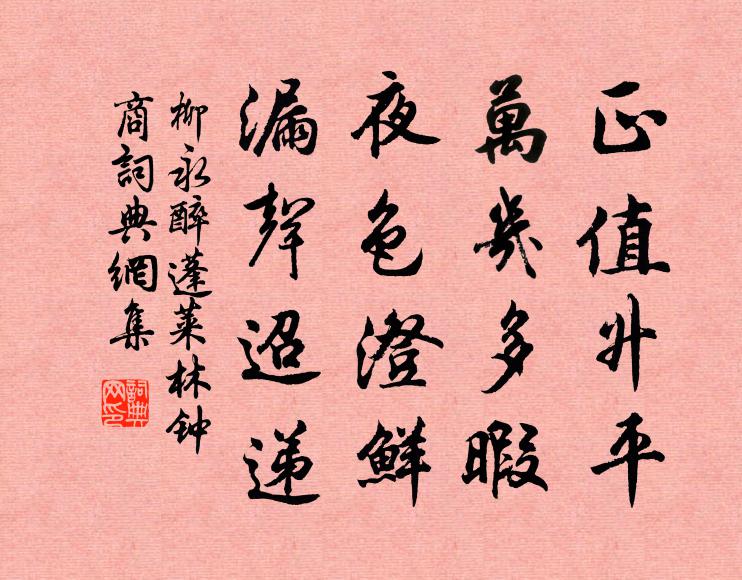 正值升平
萬幾多暇
夜色澄鮮
漏聲迢遞
柳永醉蓬萊林钟
商詞典網集
詞典
网印